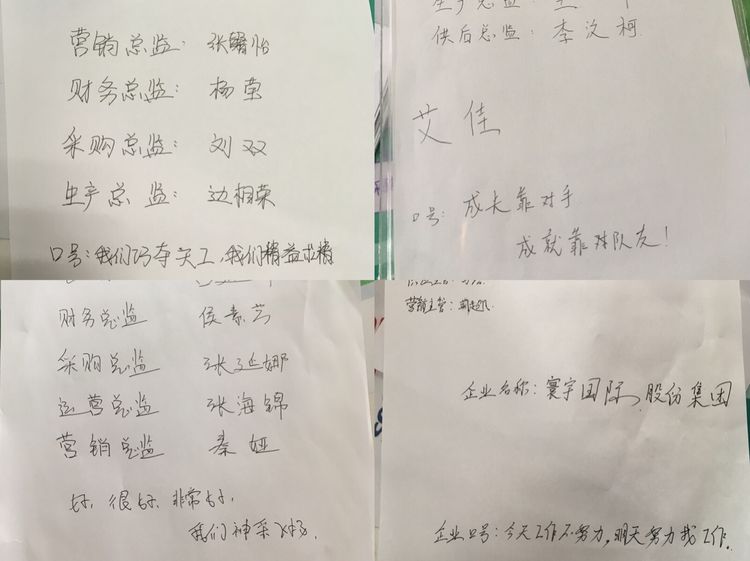 营销总监：张怡
财务总监：杨荣
采购总监：刘双
生产总监：边相荣
口号：我们巧夺天工，我们精益求精
供后总监：李汶柯
艾佳
口号：成长靠对手
成就靠队友！
财务总监 侯素芸
采购总监 张延娜
运营总监 张海锦
营销总监 秦娅
好，很好，非常好，
我们神采飞扬．
营销主管：
企业名称：寰宇国际股份集团
企业口号：今天工作不努力，明天努力找工作．